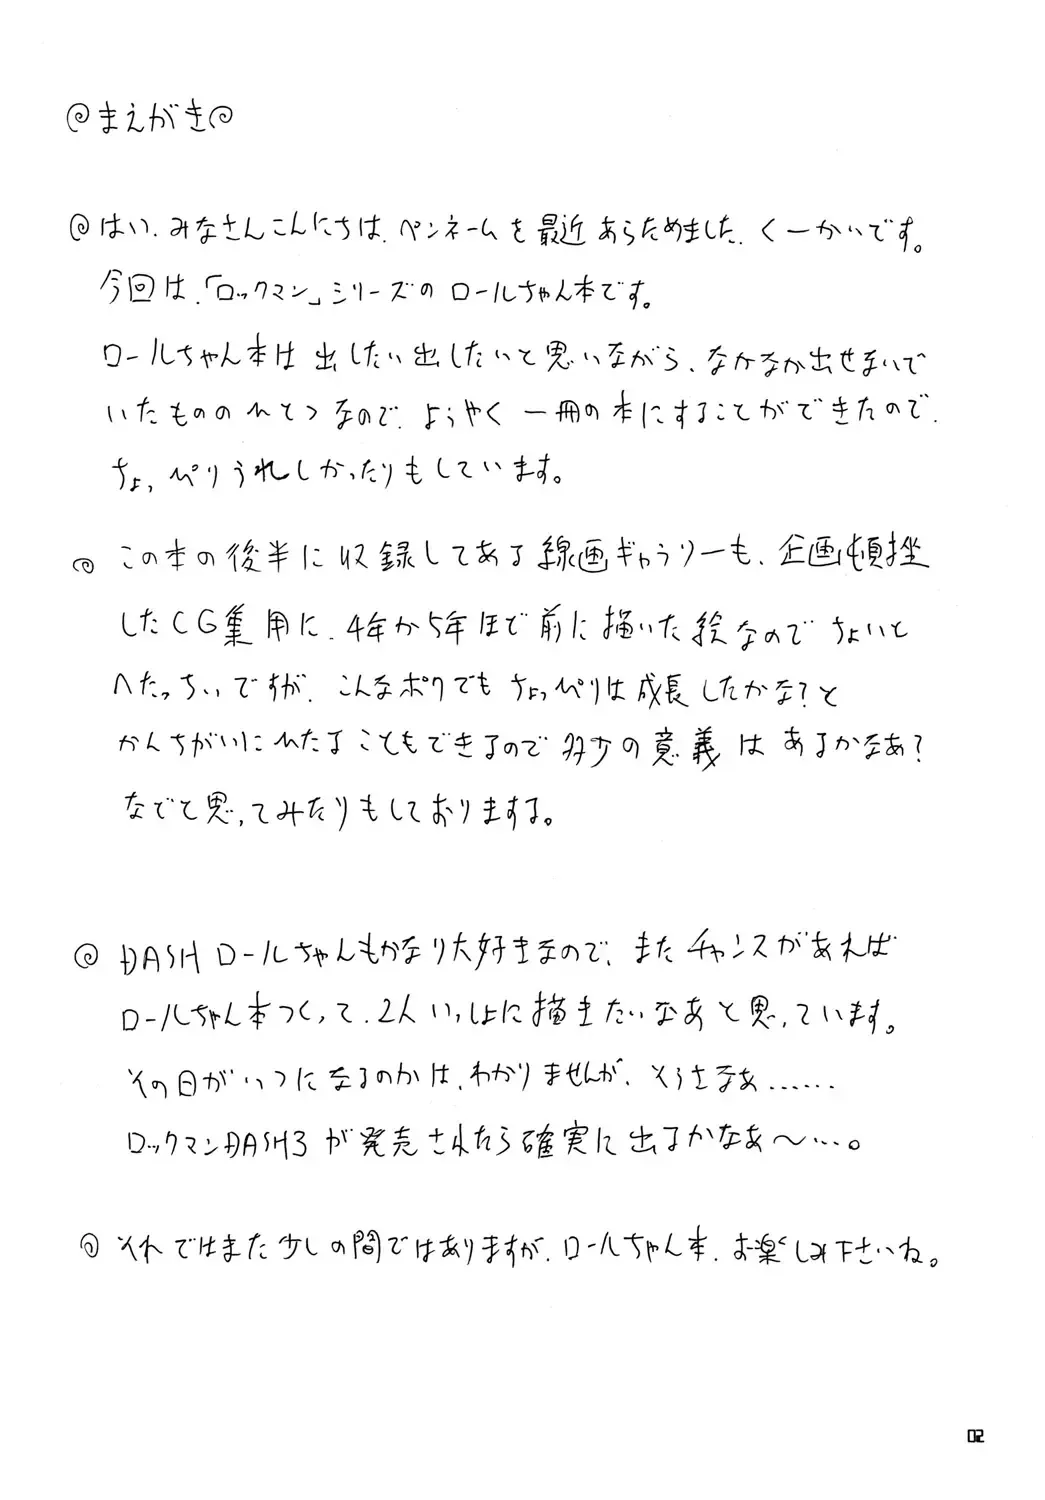 まえがき
はい、みなさんこんにちは、ペンネームを最近あらためました、くーかいです。
今回は、「ロックマン」シリーズのロールちゃん本です。
ロールちゃん本は出したい出したいと思いながら、なかなか出せないで
いたもののひとつなので、ようやく一冊の本にすることができたので、
ちょっぴりうれしかったりもしています。
この本の後半に収録してある線画ギャラリーも、企画頓挫
したCG集用に、4年から5年ほど前に描いた絵なのでちょいと
へたっちぃですが、こんなボクでもちょっぴりは成長したかな?と
かんちがいにひたることもできるので多少の意義はあるかなあ?
などと思ってみたりもしておりまする。
DASHロールちゃんもかなり大好きなので、またチャンスがあれば
ロールちゃん本つくって、2人いっしょに描きたいなあと思っています。
その日がいつになるのかは、わかりませんが、そうさなぁ......
ロックマンDASH3が発売されたら確実に出るかなあ～…。
それではまた少しの間ではありますが、ロールちゃん本、お楽しみ下さいね。
02